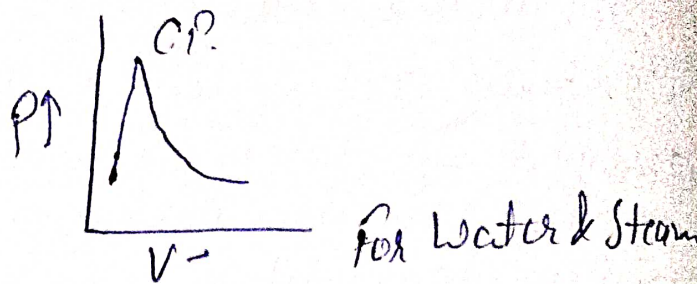 C.P.
P↑
V→
For Water & Steam